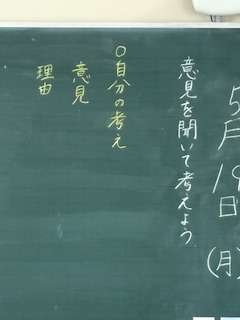 5月19日(月)
意見を聞いて考えよう
○自分の考え
意見
理由